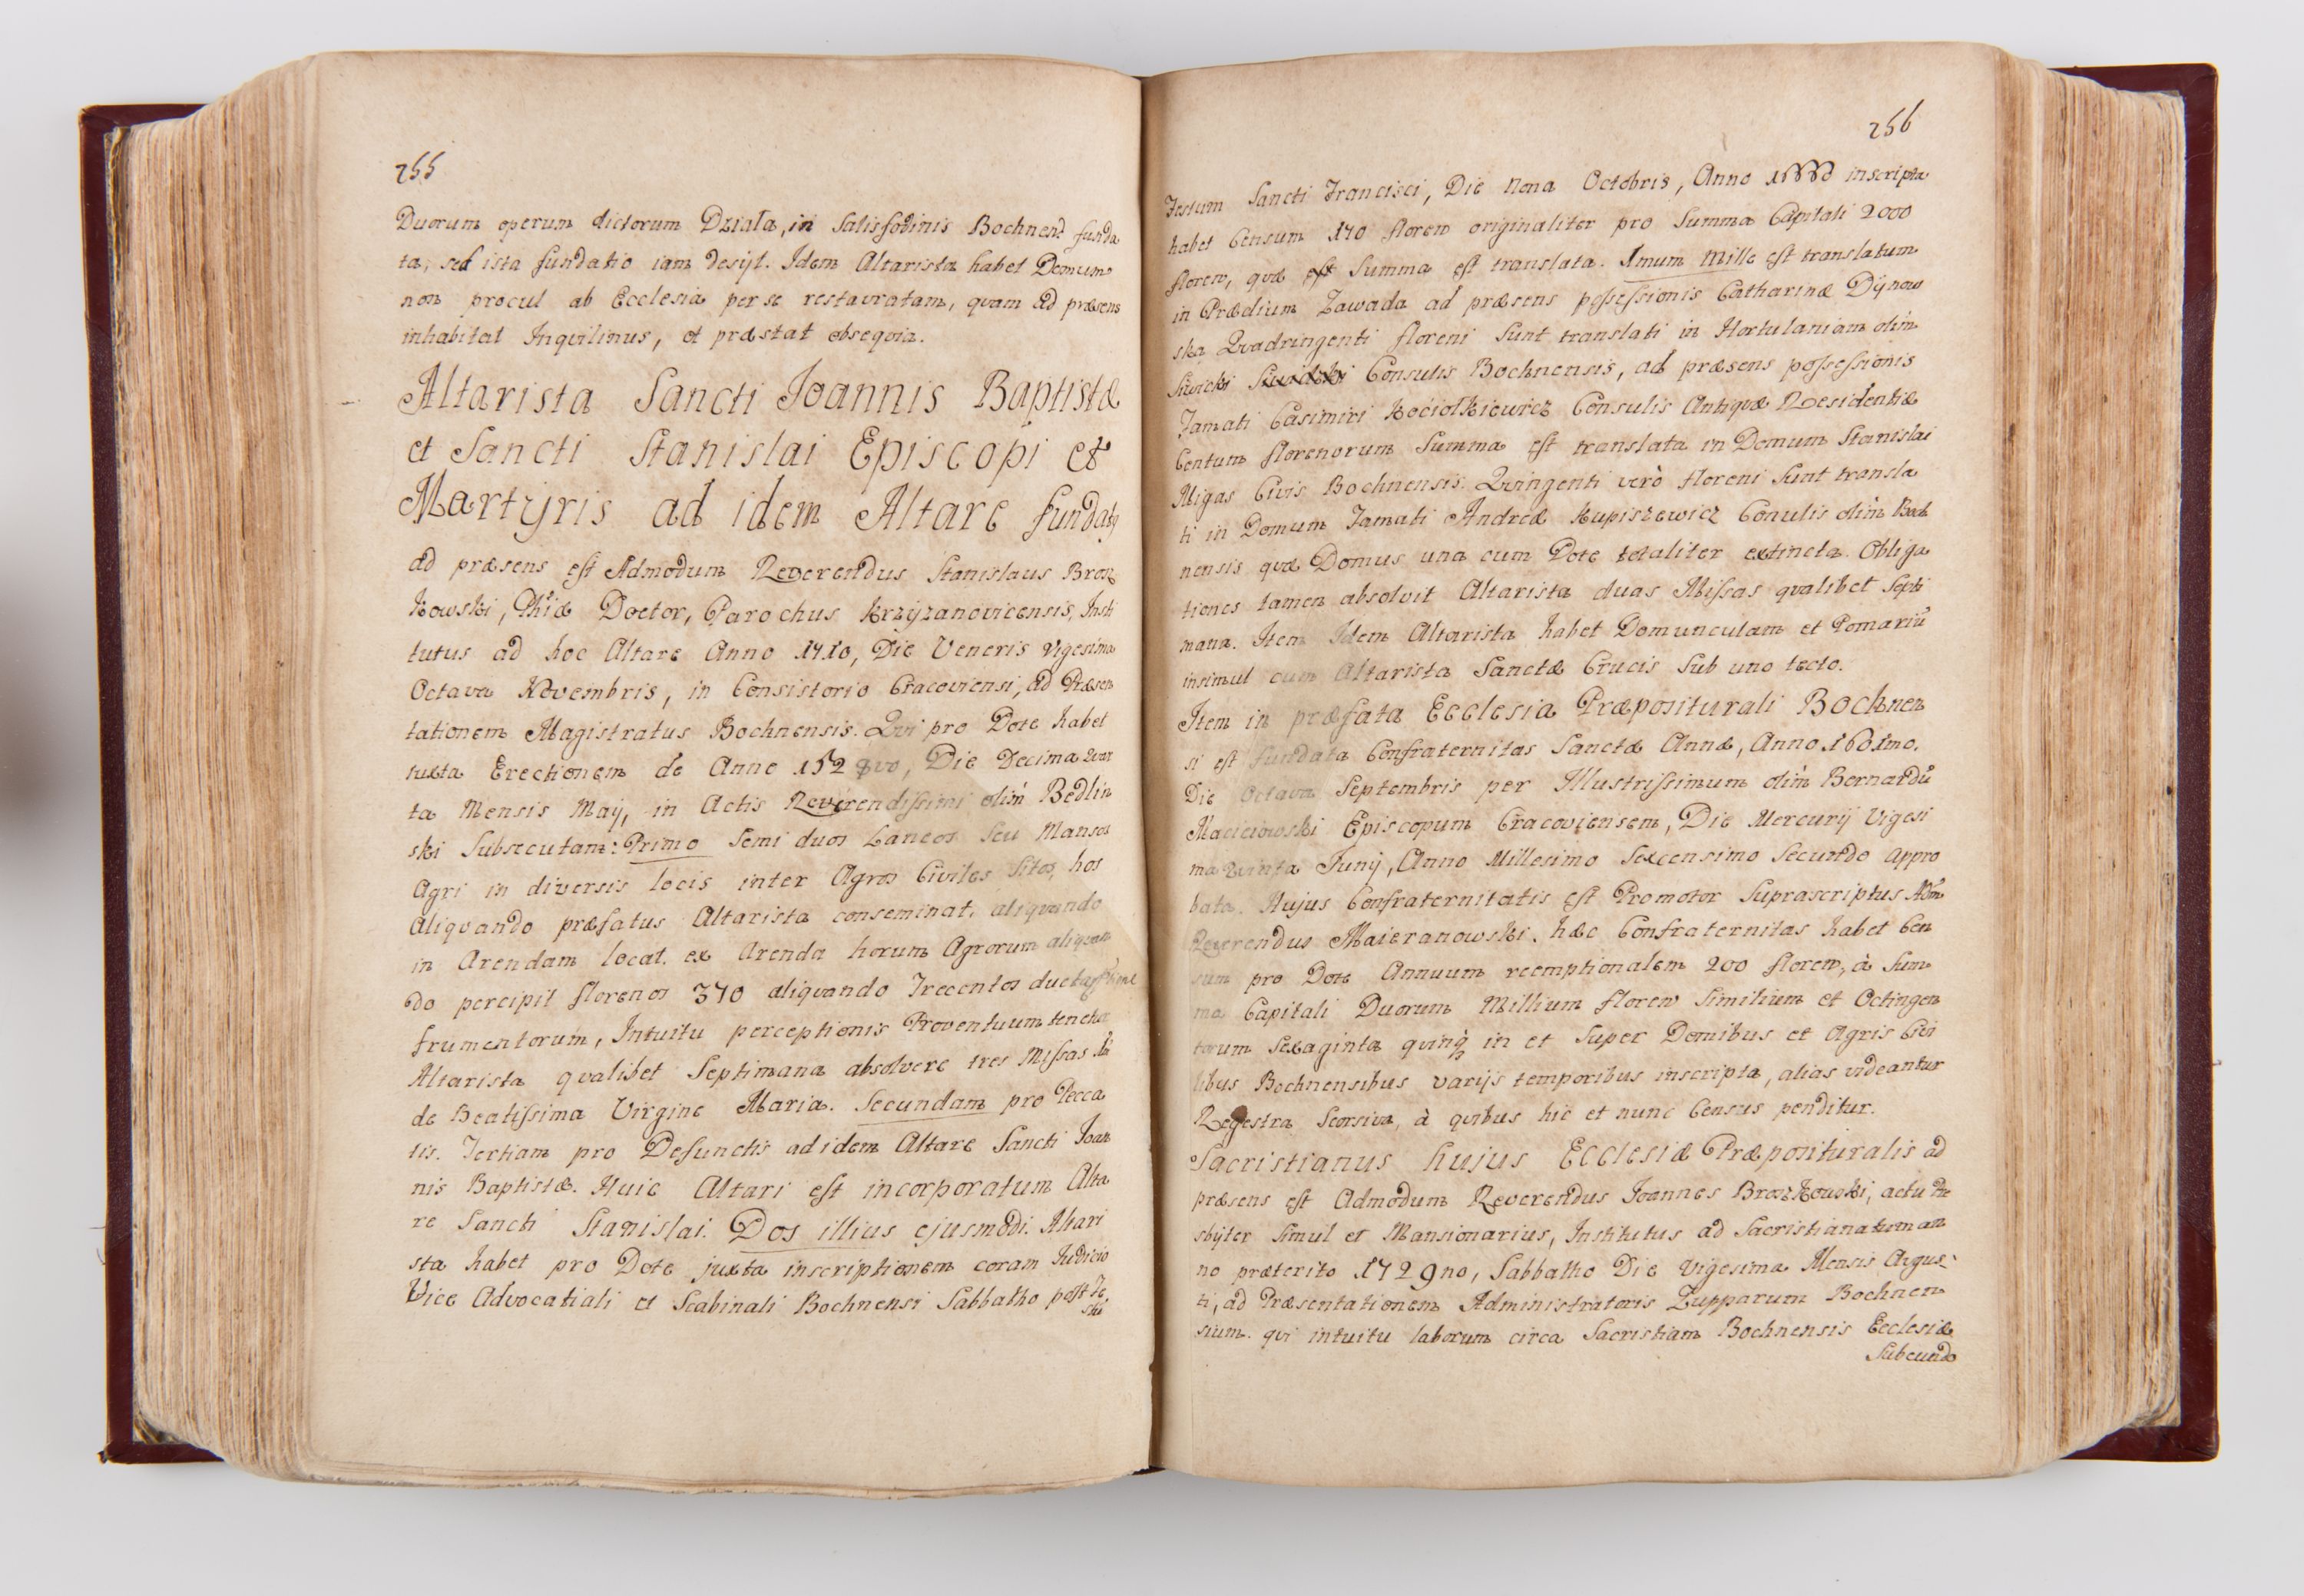 255
Duorum operum dictorum Dziala, in Salisfodinis Bochnens funda
ta, sed ista fundatio iam desijt. Idem Altarista habet Domum
non procul ab Ecclesia per se restauratam, quam ad præsens
inhabitat Inquilinus, et præstat obsequia.
Altarista Sancti Joannis Baptistæ
et Sancti Stanislai Episcopi et
Martyris ad idem Altare fundatg
ad præsens est Admodum Reverendus Stanislaus Broz
kowski, Phiæ Doctor, Parochus Krzyzanovicensis, Insti
tutus ad hoc Altare Anno 1710, Die Veneris Vigesima
Octava Novembris, in Consistorio Cracoviensi, ad Præsen
tationem Magistratus Bochnensis. Qui pro Dote habet
iuxta Erectionem de Anno 1528vo, Die Decima Quar
ta Mensis Maij, in Actis Reverendissimi olim Bedlin
ski Subsecutam: Primo Semi duos Laneos seu Mansos
Agri in diversis locis inter Agros Civiles Sitos, hos
aliquando præfatus Altarista conseminat, aliquando
in Arendam locat. ex Arenda horum Agrorum aliquan
do percipit florenos 370 aliquando Trecentos
frumentorum, Intuitu perceptionis Proventuum tenetur
Altarista qualibet Septimana absolvere tres Missas
de Beatissima Virgine Maria. Secundam pro Pecca
tis. Tertiam pro Defunctis ad idem Altare Sancti Joan
nis Baptistæ. Huic Altari est incorporatum Alta
re Sancti Stanislai. Dos illius ejusmodi. Altari
sta habet pro Dote juxta inscriptionem coram Judicio
Vice Advocatiali et Scabinali Bochnensi Sabbatho post Fe
stu
256
Festum Sancti Francisci, Die Nona Octobris, Anno inscripta
habet Censum 170 floren originaliter pro Summa Capitali 2000
floren, quæ Summa est translata. 1mum Mille est translatum
in Prædium Zawada ad præsens possessionis Catharinæ Dynow
ska Quadringenti floreni Sunt translati in Hortulaniam olim
Consulis Bochnensis, ad præsens possessionis
Famati Casimiri Kociolkiewicz Consulis Antiquæ Residentiæ
Centum florenorum Summa est translata in Domum Stanislai
Migas Civis Bochnensis. Quingenti verò floreni Sunt transla
ti in Domum Famati Andreæ Kupiszewicz Conulis olim Boch
nensis quæ Domus una cum Dote totaliter extincta. Obliga
tiones tamen absolvit Altarista duas Missas qualibet Septi
mana. Item Idem Altarista habet Domunculam et Pomariu
insimul cum Altarista Sanctæ Crucis Sub uno tecto.
Item in præfata Ecclesia Præpositurali Bochnen
si est fundata Confraternitas Sanctæ Annæ, Anno 1601mo.
Die Octava Septembris per Illustrissimum olim Bernardu
Macieiowski Episcopum Cracoviensem, Die Mercurij Vigesi
ma Quinta Junij, Anno Millesimo Sexcensimo Secundo appro
bata. Hujus Confraternitatis est Promotor Suprascriptus Adm
Reverendus Maieranowski. hæc Confraternitas habet Cen
sum pro Dote Annuum reemptionalem 200 floren, à Sum
ma Capitali Duorum Millium floren Similium et Octingen
torum Sexaginta quinq in et Super Domibus et Agris Civi
libus Bochnensibus varijs temporibus inscripta, alias videantur
Regestra Seorsiva, à quibus hic et nunc Census penditur.
Sacristianus hujus Ecclesiæ Præposituralis ad
præsens est Admodum Reverendus Joannes Brozkowski, actu Pre
sbyter Simul et Mansionarius, Institutus ad Sacristianatum an
no præterito 1729no, Sabbatho Die Vigesima Mensis Augus
ti, ad Præsentationem Administratoris Zupparum Bochnen
sium. qui intuitu laborum circa Sacristiam Bochnensis Ecclesiæ
Subeundo